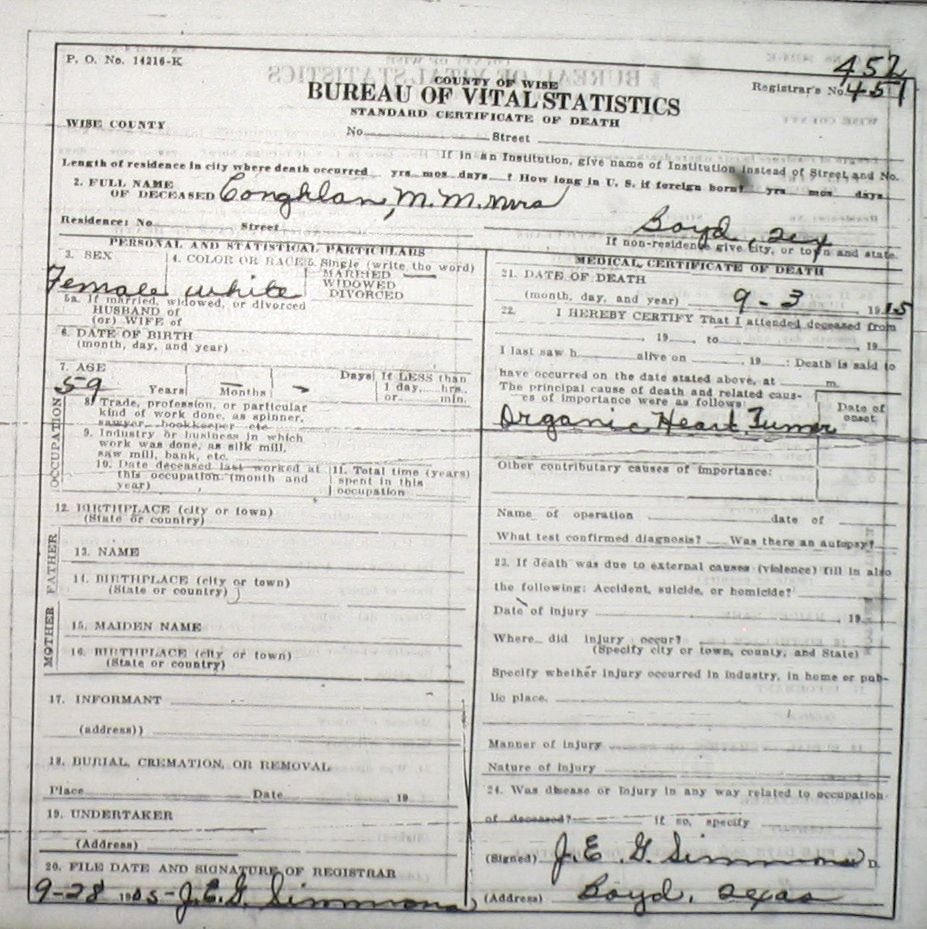 P. O. No. 14216-K
452
COUNTY OF WISE
Registrar's No. 451
BUREAU OF VITAL STATISTICS
STANDARD CERTIFICATE OF DEATH
WISE COUNTY No. Street
If in an Institution, give name of Institution instead of Street and No.
Length of residence in city where death occurred yrs mos days ? How long in U. S. if foreign born? yrs mos days
2. FULL NAME
OF DECEASED Conghlan, M. M. mrs
Residence: No. Street Boyd, Tex
If non-residence give city, or town and state.
PERSONAL AND STATISTICAL PARTICULARS
3. SEX 4. COLOR OR RACE 5. Single (write the word)
MARRIED
WIDOWED
DIVORCED
Female white
5a. If married, widowed, or divorced
HUSBAND of
(or) WIFE of
6. DATE OF BIRTH
(month, day, and year)
7. AGE
59 Years Months - Days If LESS than
1 day, hrs.
or min.
OCCUPATION
8. Trade, profession, or particular
kind of work done, as spinner,
sawyer, bookkeeper etc
9. Industry or business in which
work was done, as silk mill,
saw mill, bank, etc.
10. Date deceased last worked at
this occupation (month and
year)
11. Total time (years)
spent in this
occupation
12. BIRTHPLACE (city or town)
(State or country)
FATHER
13. NAME
14. BIRTHPLACE (city or town)
(State or country)
MOTHER
15. MAIDEN NAME
16. BIRTHPLACE (city or town)
(State or country)
17. INFORMANT
(address))
18. BURIAL, CREMATION, OR REMOVAL
Place Date 19
19. UNDERTAKER
(Address)
20. FILE DATE AND SIGNATURE OF REGISTRAR
9-28 1905-J.E.G. Simmons
MEDICAL CERTIFICATE OF DEATH
21. DATE OF DEATH
(month, day, and year) 9-3, 19
22. I HEREBY CERTIFY That I attended deceased from
, 19 to , 19
I last saw h alive on , 19 : Death is said to
have occurred on the date stated above, at m.
The principal cause of death and related caus-
es of importance were as follows:
Date of
onset
Organic Heart Tumer
Other contributary causes of importance:
Name of operation date of
What test confirmed diagnosis? Was there an autopsy?
23. If death was due to external causes (violence) fill in also
the following: Accident, suicide, or homicide?
Date of injury , 19
Where did injury occur?
(Specify city or town, county, and State)
Specify whether injury occurred in industry, in home or pub-
lic place.
Manner of injury
Nature of injury
24. Was disease or injury in any way related to occupation
of deceased? If so, specify
(Signed) J. E. G. Simmons D.
(Address) Boyd, Texas